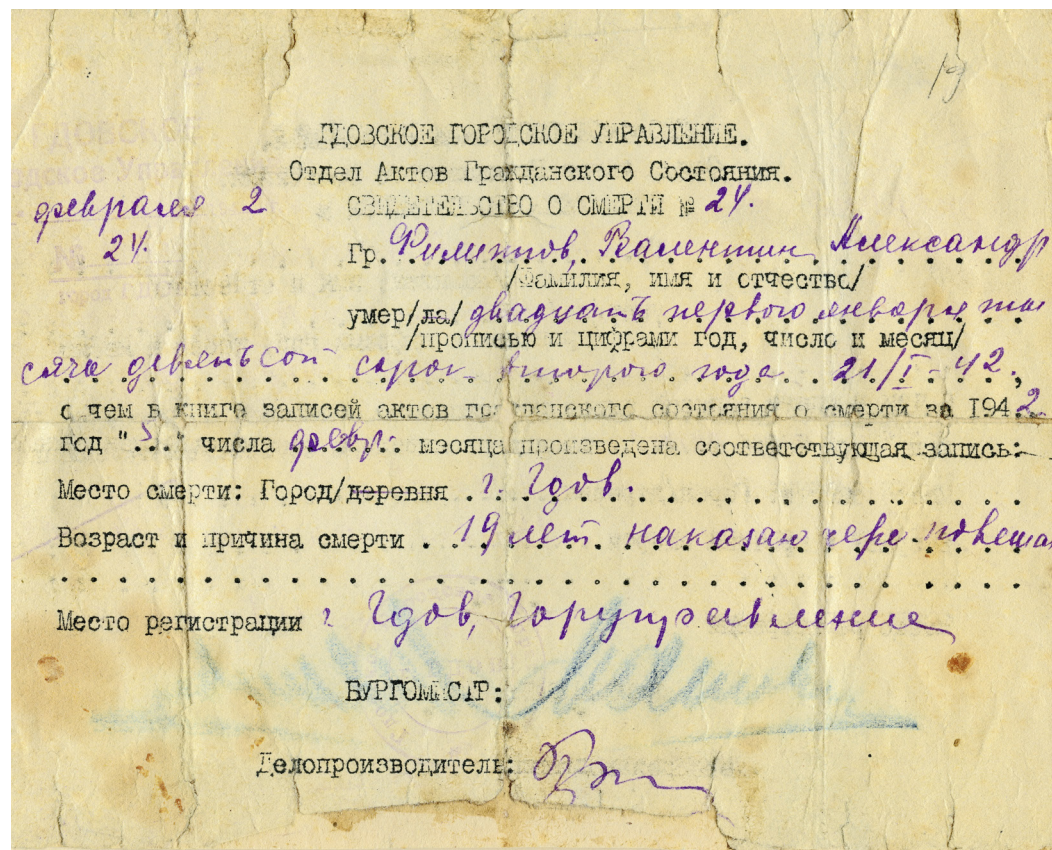 19
ГДОВСКОЕ ГОРОДСКОЕ УПРАВЛЕНИЕ.
Отдел Актов Гражданского Состояния.
февраля 2
СВИДЕТЕЛЬСТВО О СМЕРТИ № 24.
24.
Гр. Филиппов, Валентин Александр
/Фамилия, имя и отчество/
умер/ла/ двадцать первого января ты
/прописью и цифрами год, число и месяц/
сяча девятьсот сорок второго года 21/I-42.,
о чем в книге записей актов гражданского состояния о смерти за 1942
год "..." числа февр. месяца произведена соответствующая запись:
Место смерти: Город/деревня г. Гдов.
Возраст и причина смерти . 19 лет. наказан чере повешан
Место регистрации г Гдов, Горуправление
БУРГОМИСТР:
Делопроизводитель: